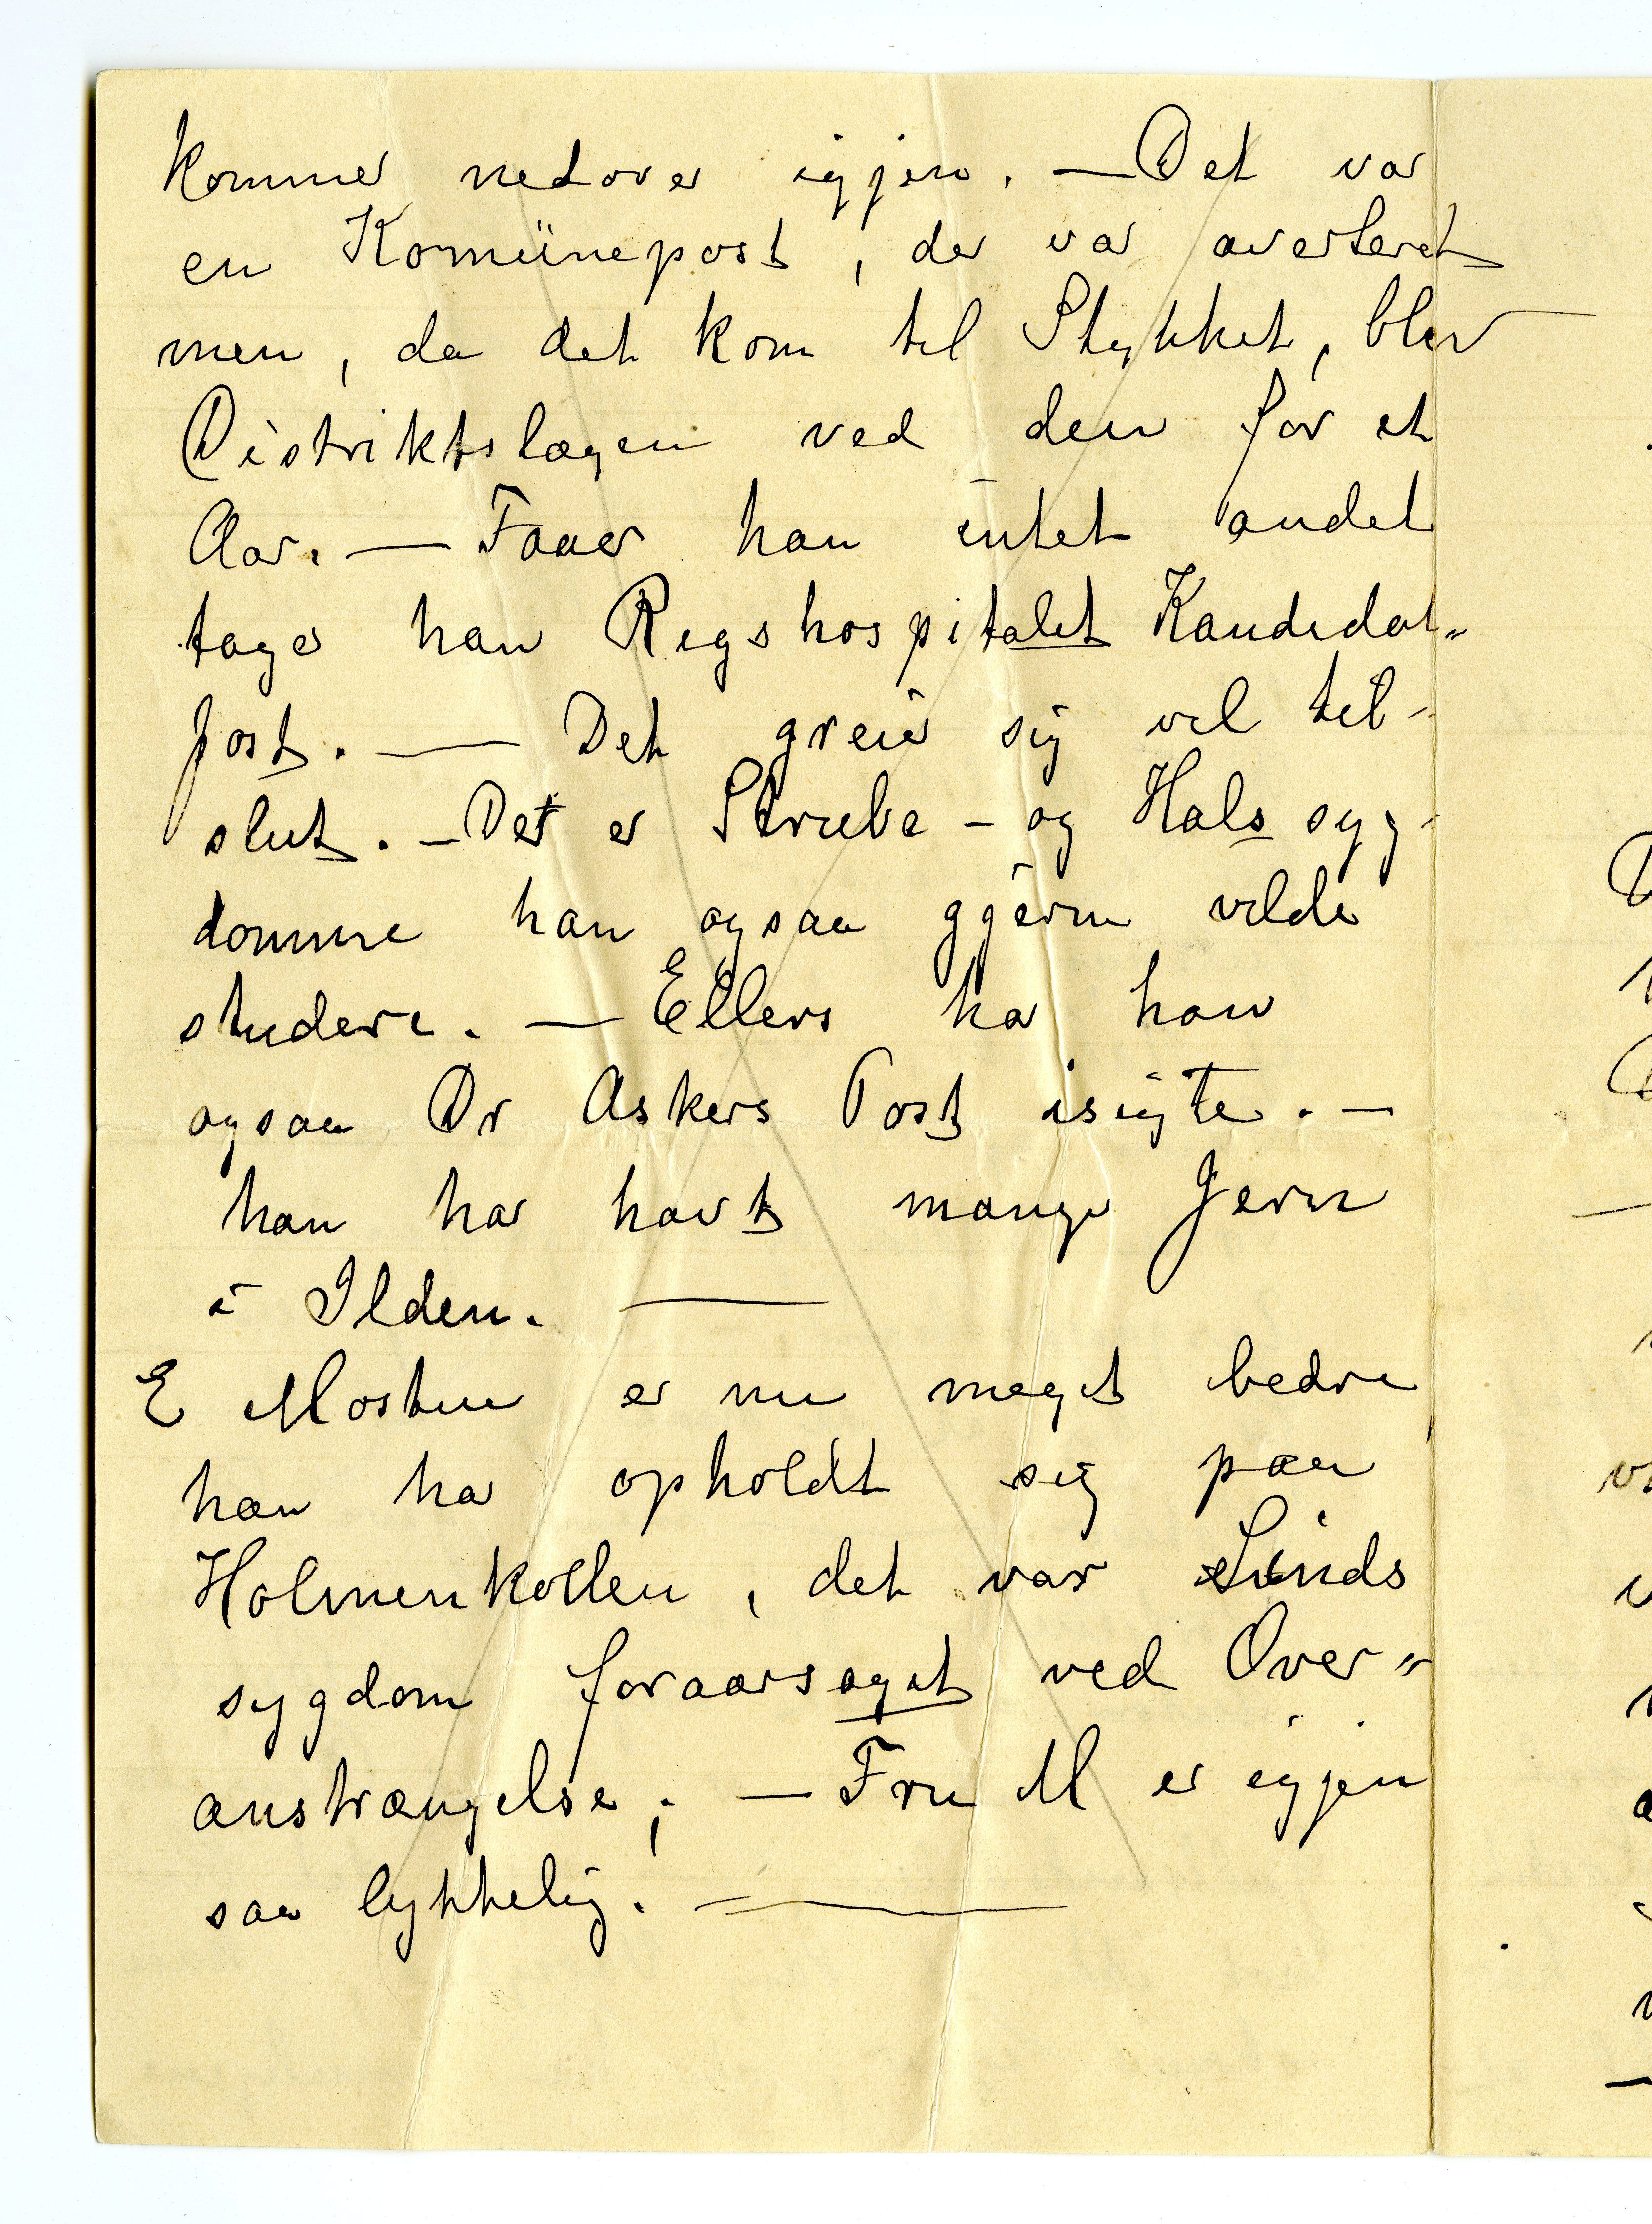 kommer nedover igjen. — Det var
en Komünepost, der var averteret
men, da det kom til Stykket, blev
Distriktslægen ved den for et
Aar. — Faaer han intet andet
tager han Rigshospitalet Kandidat„
post. — Det greier sig vel til-
slut. — Det er Strube- og Hals syg-
domme han ogsaa gjerne vilde
studere. — Ellers har han
ogsaa Dr Askers Post isigte. —
han har havt mange Jern
i Ilden. —
E Mosten er nu meget bedre
han har opholdt sig paa
Holmenkollen, det var Sinds
sygdom foraarsaget ved Over„
anstrængelse; — Fru M er igjen
saa lykkelig. —